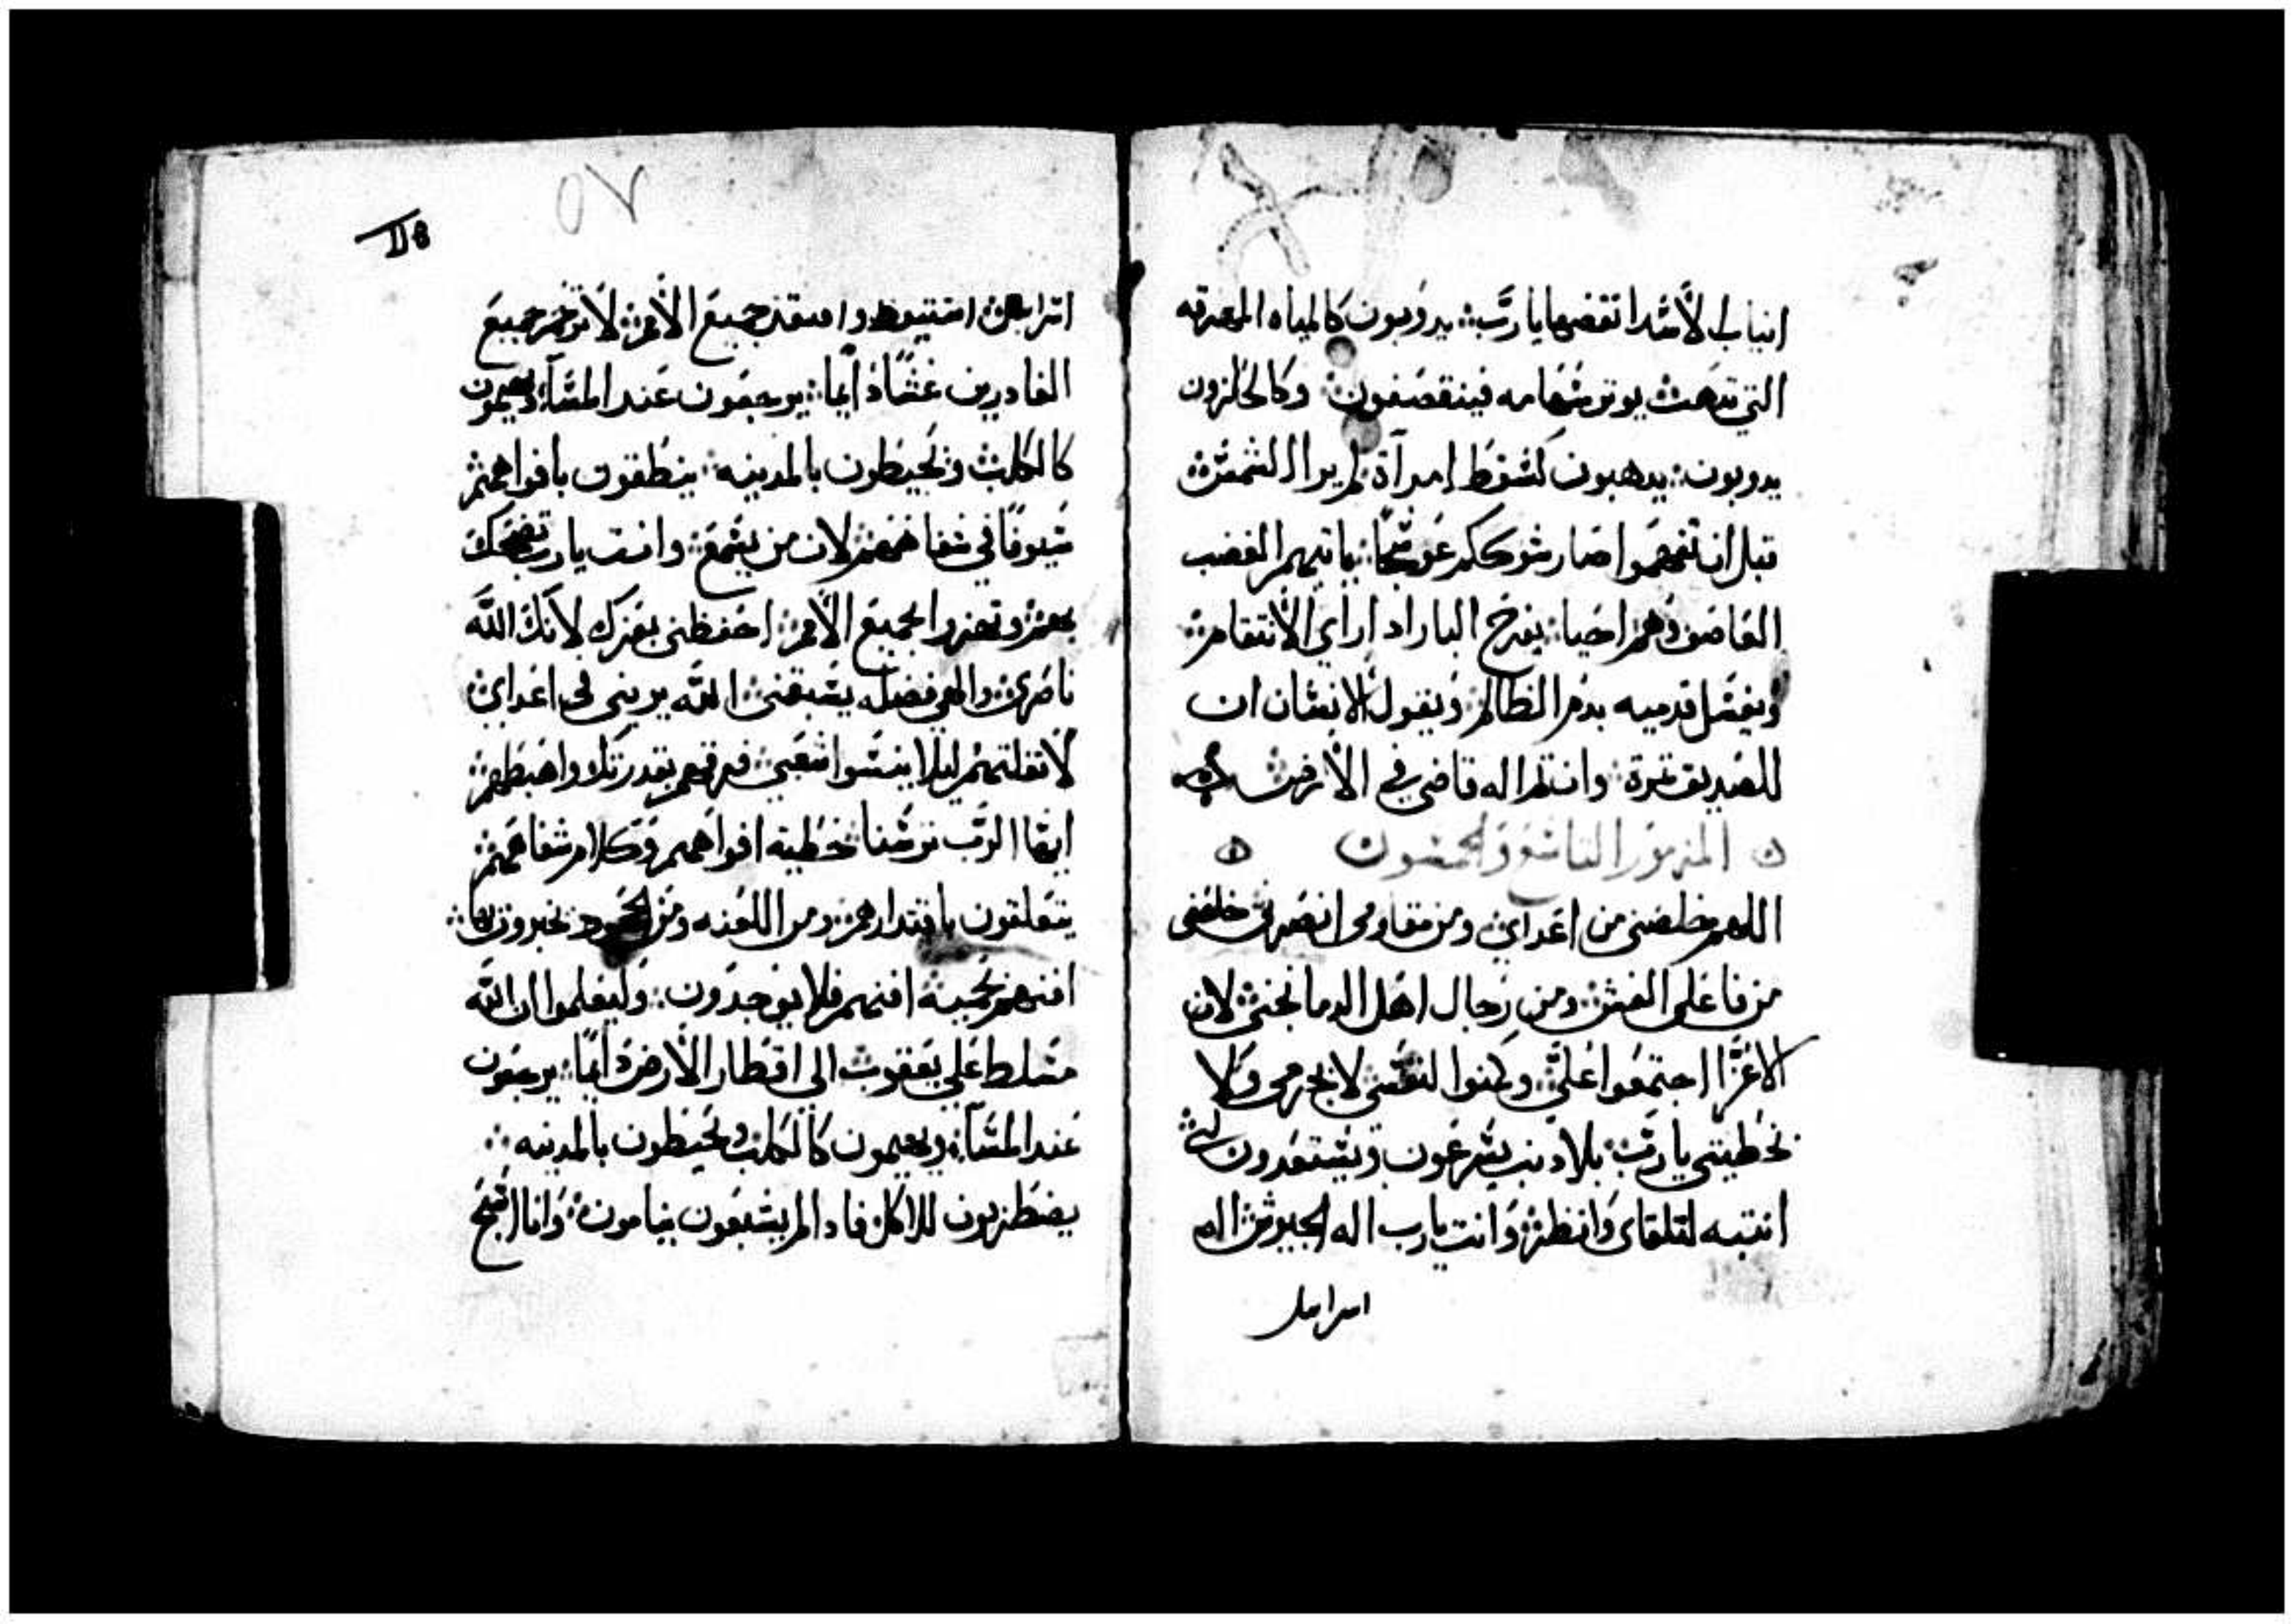 انياب الأسد انقضها يا رب ∴ يدوبون كالمياه المهرقه
التي تدهب ∴ يوتر سهامه فينقصفون ∴ وكالحلزون
يدوبون ∴ يدهبون كسقط امرآة لم يرا الشمس ∴
قبل ان تفهموا صار شوككم عوسجًا ∴ ياتيهم الغضب
القاصف وهم احيا ∴ يفرح البار ادا راي الأنتقام ∴
ويغسل قدميه بدم الظالم ∴ ويقول الانسان ان
للصديق تمرة ∴ وان لنا اله قاضي في الأرض ∴
المزمور التاسع والخمسون
اللهم خلصني من اعداي ∴ ومن مقاومي انصرني خلصني
من فاعلي الغش ∴ ومن رجال اهل الدما نجني ∴ لان
الأعزا اجتمعوا علي ∴ وكمنوا لنفسي لا بجرمي ولا
بخطيتي يا رب ∴ بلا دنب يسرعون ويستعدون لي ∴
انتبه لتلقاي وانظر ∴ وانت يا رب اله الجيوش اله
اسرايل
٥٧
118
اسرايل استيقظ وافتقد جميع الأمم ∴ لا ترحم جميع
الغادرين غشًا دايما ∴ يرجعون عند المسآء ويهيمون
كالكلب ويحيطون بالمدينه ∴ ينطقون بافواههم ∴
سيوفًا في شفاههم ∴ لان من يسمع ∴ وانت يا رب تضحك
بهم ∴ وتهزوا بجميع الأمم ∴ احفظني بعزك لأنك الله
ناصري ∴ والهي فضله يسبقني ∴ الله يريني في اعداي ∴
لا تقتلهم ليلا ينسوا شعبي ∴ فرقهم بقدرتك واهبطهم ∴
ايها الرب ترسنا خطية افواههم وكلام شفاههم ∴
يتعلقون باقتدارهم ∴ ومن اللعنه ومن الجحود يخبرون بها ∴
افنهم بحميه ∴ افنهم فلا يوجدون ∴ وليعلموا ان الله
متسلط علي يعقوب الي اقطار الأرض دايمًا ∴ يرجعون
عند المسآء ويهيمون كالكلب ويحيطون بالمدينه ∴
يضطربون للاكل ∴ فادا لم يشبعون ينامون ∴ وانا اسبح